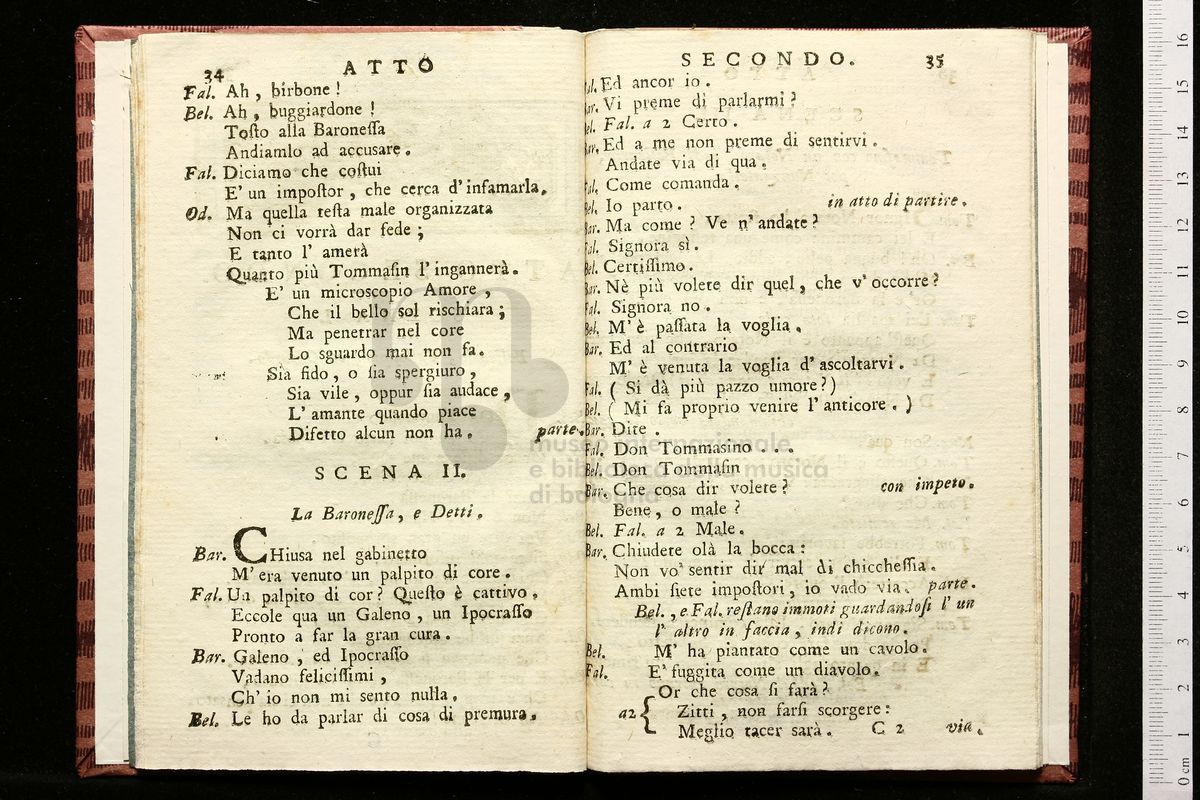 34 ATTO
Fal. Ah, birbone!
Bel. Ah, buggiardone!
Toſto alla Baroneſſa
Andiamlo ad accusare.
Fal. Diciamo che coſtui
E' un impoſtor, che cerca d'infamarla.
Od. Ma quella teſta male organizzata
Non ci vorrà dar fede;
E tanto l' amerà
Quanto più Tommaſin l'ingannerà.
E' un microscopio Amore,
Che il bello sol rischiara;
Ma penetrar nel core
Lo sguardo mai non fa.
Sia fido, o ſia spergiuro,
Sia vile, oppur ſia audace,
L' amante quando piace
Difetto alcun non ha. parte.
SCENA II.
La Baroneſſa, e Detti.
Bar. CHiusa nel gabinetto
M' era venuto un palpito di core.
Fal. Un palpito di cor? Queſto è cattivo.
Eccole qua un Galeno, un Ipocraſſo
Pronto a far la gran cura.
Bar. Galeno, ed Ipocraſſo
Vadano feliciſſimi,
Ch' io non mi sento nulla.
Bel. Le ho da parlar di cosa di premura.
SECONDO. 35
al. Ed ancor io.
ar. Vi preme di parlarmi?
el. Fal. a 2 Certo.
Bar. Ed a me non preme di sentirvi.
Andate via di qua.
Fal. Come comanda.
Bel. Io parto. in atto di partire.
Bar. Ma come? Ve n'andate?
Fal. Signora sì.
Bel. Certiſſimo.
Bar. Nè più volete dir quel, che v'occorre?
Fal. Signora no.
Bel. M' è paſſata la voglia.
Bar. Ed al contrario
M' è venuta la voglia d' ascoltarvi.
Fal. (Si dà più pazzo umore?)
Bel. (Mi fa proprio venire l'anticore.)
Bar. Dite.
Fal. Don Tommasino...
Bel. Don Tommaſin
Bar. Che cosa dir volete? con impeto.
Bene, o male?
Bel. Fal. a 2 Male.
Bar. Chiudete olà la bocca:
Non vo' sentir dir mal di chiccheſſia.
Ambi ſiete impoſtori, io vado via. parte.
Bel., e Fal. reſtano immoti guardandoſi l' un
l' altro in faccia, indi dicono.
Bel. M' ha piantato come un cavolo.
Fal. E' fuggita come un diavolo.
Or che cosa ſi farà?
a2 { Zitti, non farſi scorgere:
Meglio tacer sarà. C 2 via.
museo internazionale
e biblioteca della musica
di bologna
0 cm 1 2 3 4 5 6 7 8 9 10 11 12 13 14 15 16